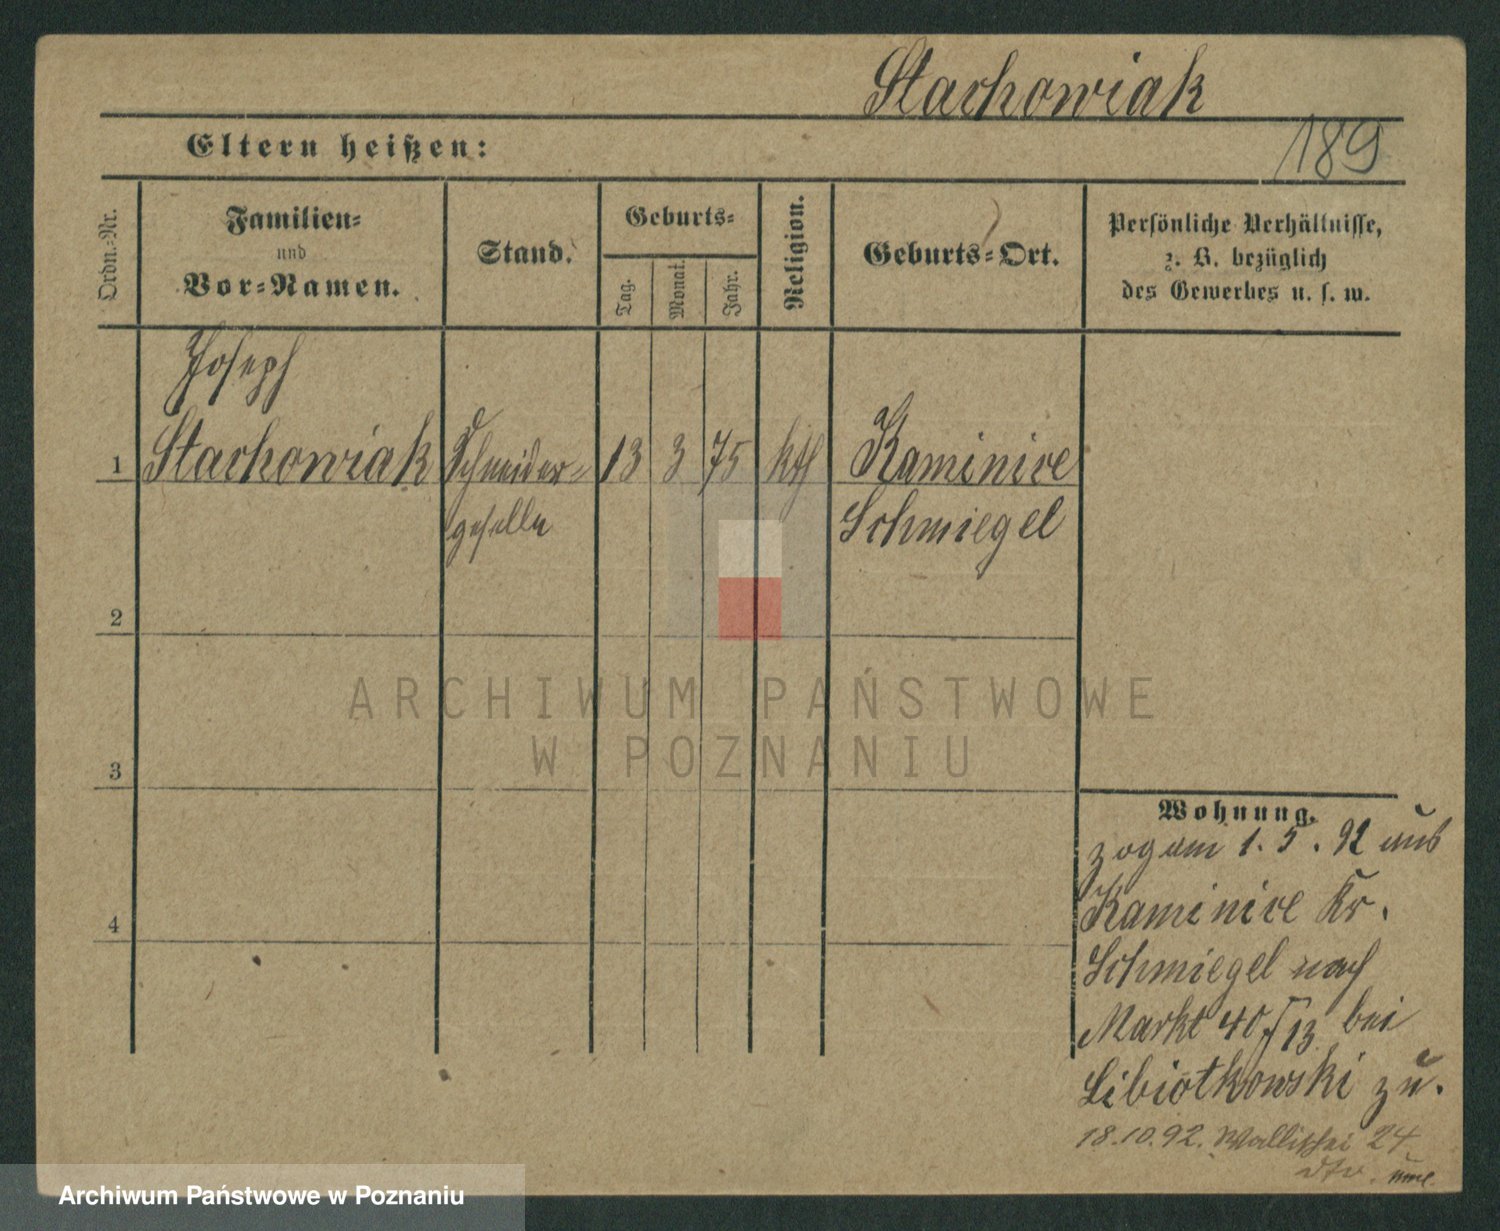 Stachowiak
189
Eltern heißen:
Ordn.-Nr.
Familien-
und
Vor-Namen.
Stand.
Geburts-
Tag.
Monat.
Jahr.
Religion.
Geburts-Ort.
Persönliche Verhältnisse,
z. B. bezüglich
des Gewerbes u. s. w.
Joseph
1 Stachowiak Schneider- 13 3 75 kth Kaminice
geselle Schmiegel
2
3
4
Wohnung.
zog am 1. 5. 92 aus
Kaminice Kr.
Schmiegel nach
Markt 40 bei
Libiotkowski zu.
18.10.92. Wallischei 24.
ARCHIWUM PAŃSTWOWE
W POZNANIU
Archiwum Państwowe w Poznaniu